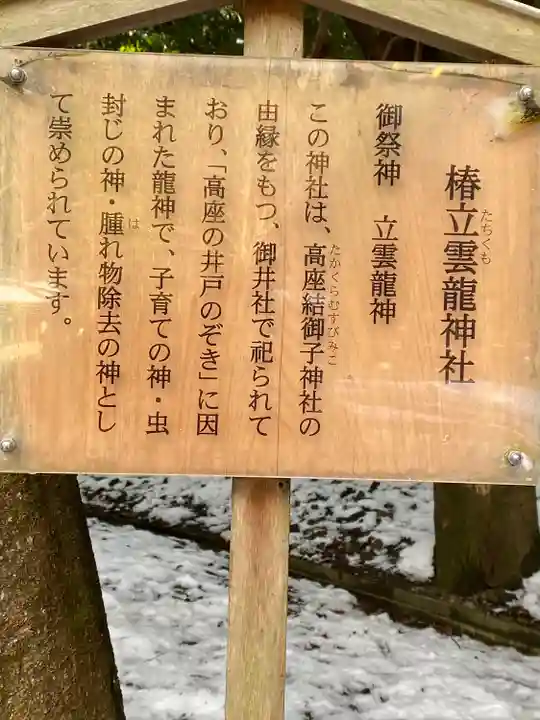 椿立雲龍神社
たちくも
御祭神　立雲龍神
この神社は、高座結御子神社の
たかくらむすびみこ
由縁をもつ、御井社で祀られて
おり、「高座の井戸のぞき」に因
まれた龍神で、子育ての神・虫
封じの神・腫れ物除去の神とし
は
て崇められています。